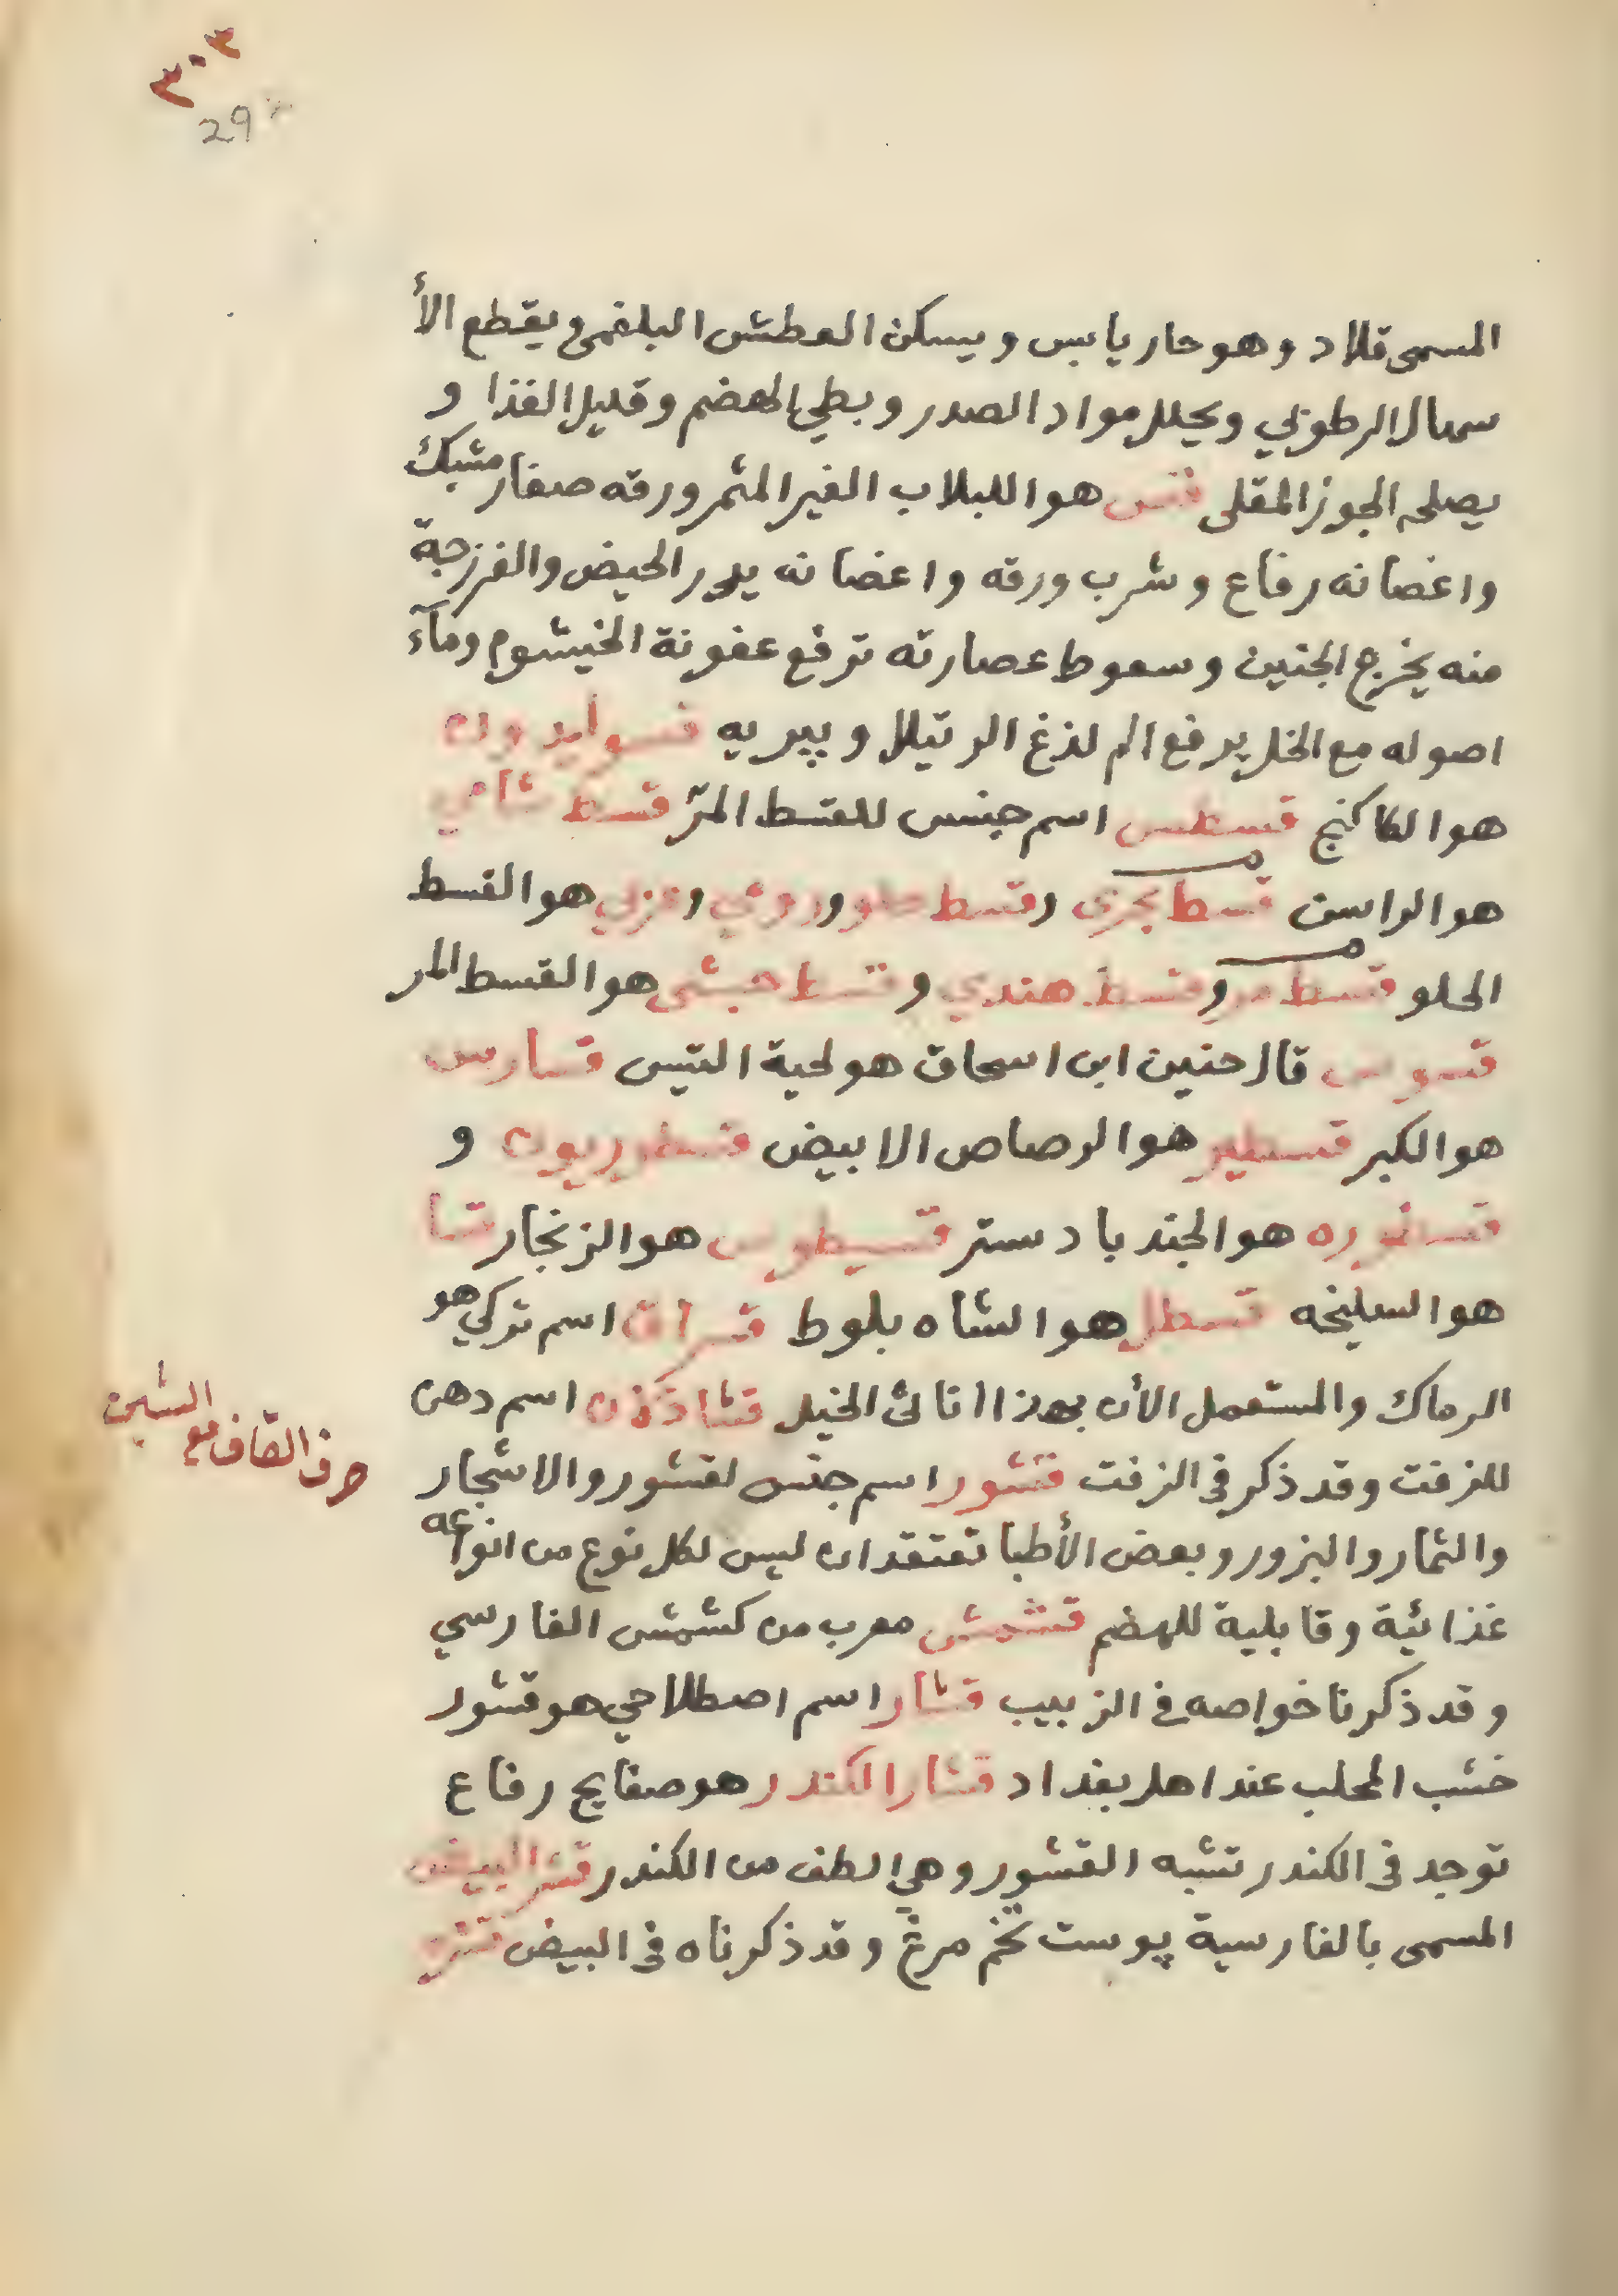 ٣٠٣
29
المسمى قلاد وهو حار يابس ويسكن العطش البلغمي ويقطع الأ
سهال الرطوبي ويحلل مواد الصدر وبطي الهضم وقليل الغذا و
يصلحه الجوز المقلى قسس هو اللبلاب الغير المثمر ورقه صغار مشبك
واغصانه رفاع وشرب ورقه واغصانه يدير الحيض والفرزجة
منه يخرج الجنين وسعوط عصارته ترفع عفونة الخيشوم ومآء
اصوله مع الخل يرفع الم لذغ الرتيلا وپيريه
هو الكاكنج قسطس اسم جنس للقسط المرّ قسط شامي
هو الراسن قسط بحري وقسط حلو ورومي وعربي هو القسط
الحلو قسط مر وقسط هندي وقسط حبشي هو القسط المر
قسوس قال حنين ابن اسحاق هو لحية التيس قسارس
هو الكبر قسطير هو الرصاص الابيض قسطوريون و
هو الجند بادستر قسيطوس هو الزنجار قسا
هو السليخه قسطل هو الشاه بلوط قسراق اسم تركي هو
الرماك والمستعمل الأن بهذا اناثى الخيل اسم دهن
للزفت وقد ذكر في الزفت قشور اسم جنس لقشور والاشجار
والثمار والبزور وبعض الأطبا تعتقد ان ليس لكل نوع من انواعه
غذائية وقابلية للهضم قشمش معرب من كشمش الفارسي
وقد ذكرنا خواصه في الزبيب قشار اسم اصطلاحي هو قشور
خشب المحلب عند اهل بغداد قشار الكندر هو صفايح رفاع
توجد في الكندر تشبه القشور وهي الطف من الكندر قشر البيض
المسمى بالفارسية پوست تخم مرغ وقد ذكرناه في البيض
حرف القاف مع الشين